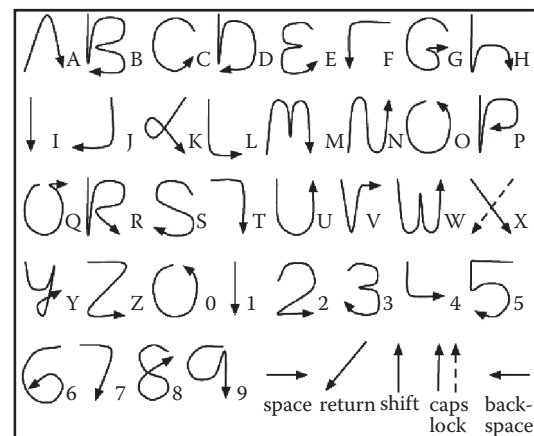 A B C D E F G H
I J K L M N O P
Q R S T U V W X
Y Z 0 1 2 3 4 5
6 7 8 9 space return shift caps lock back-space